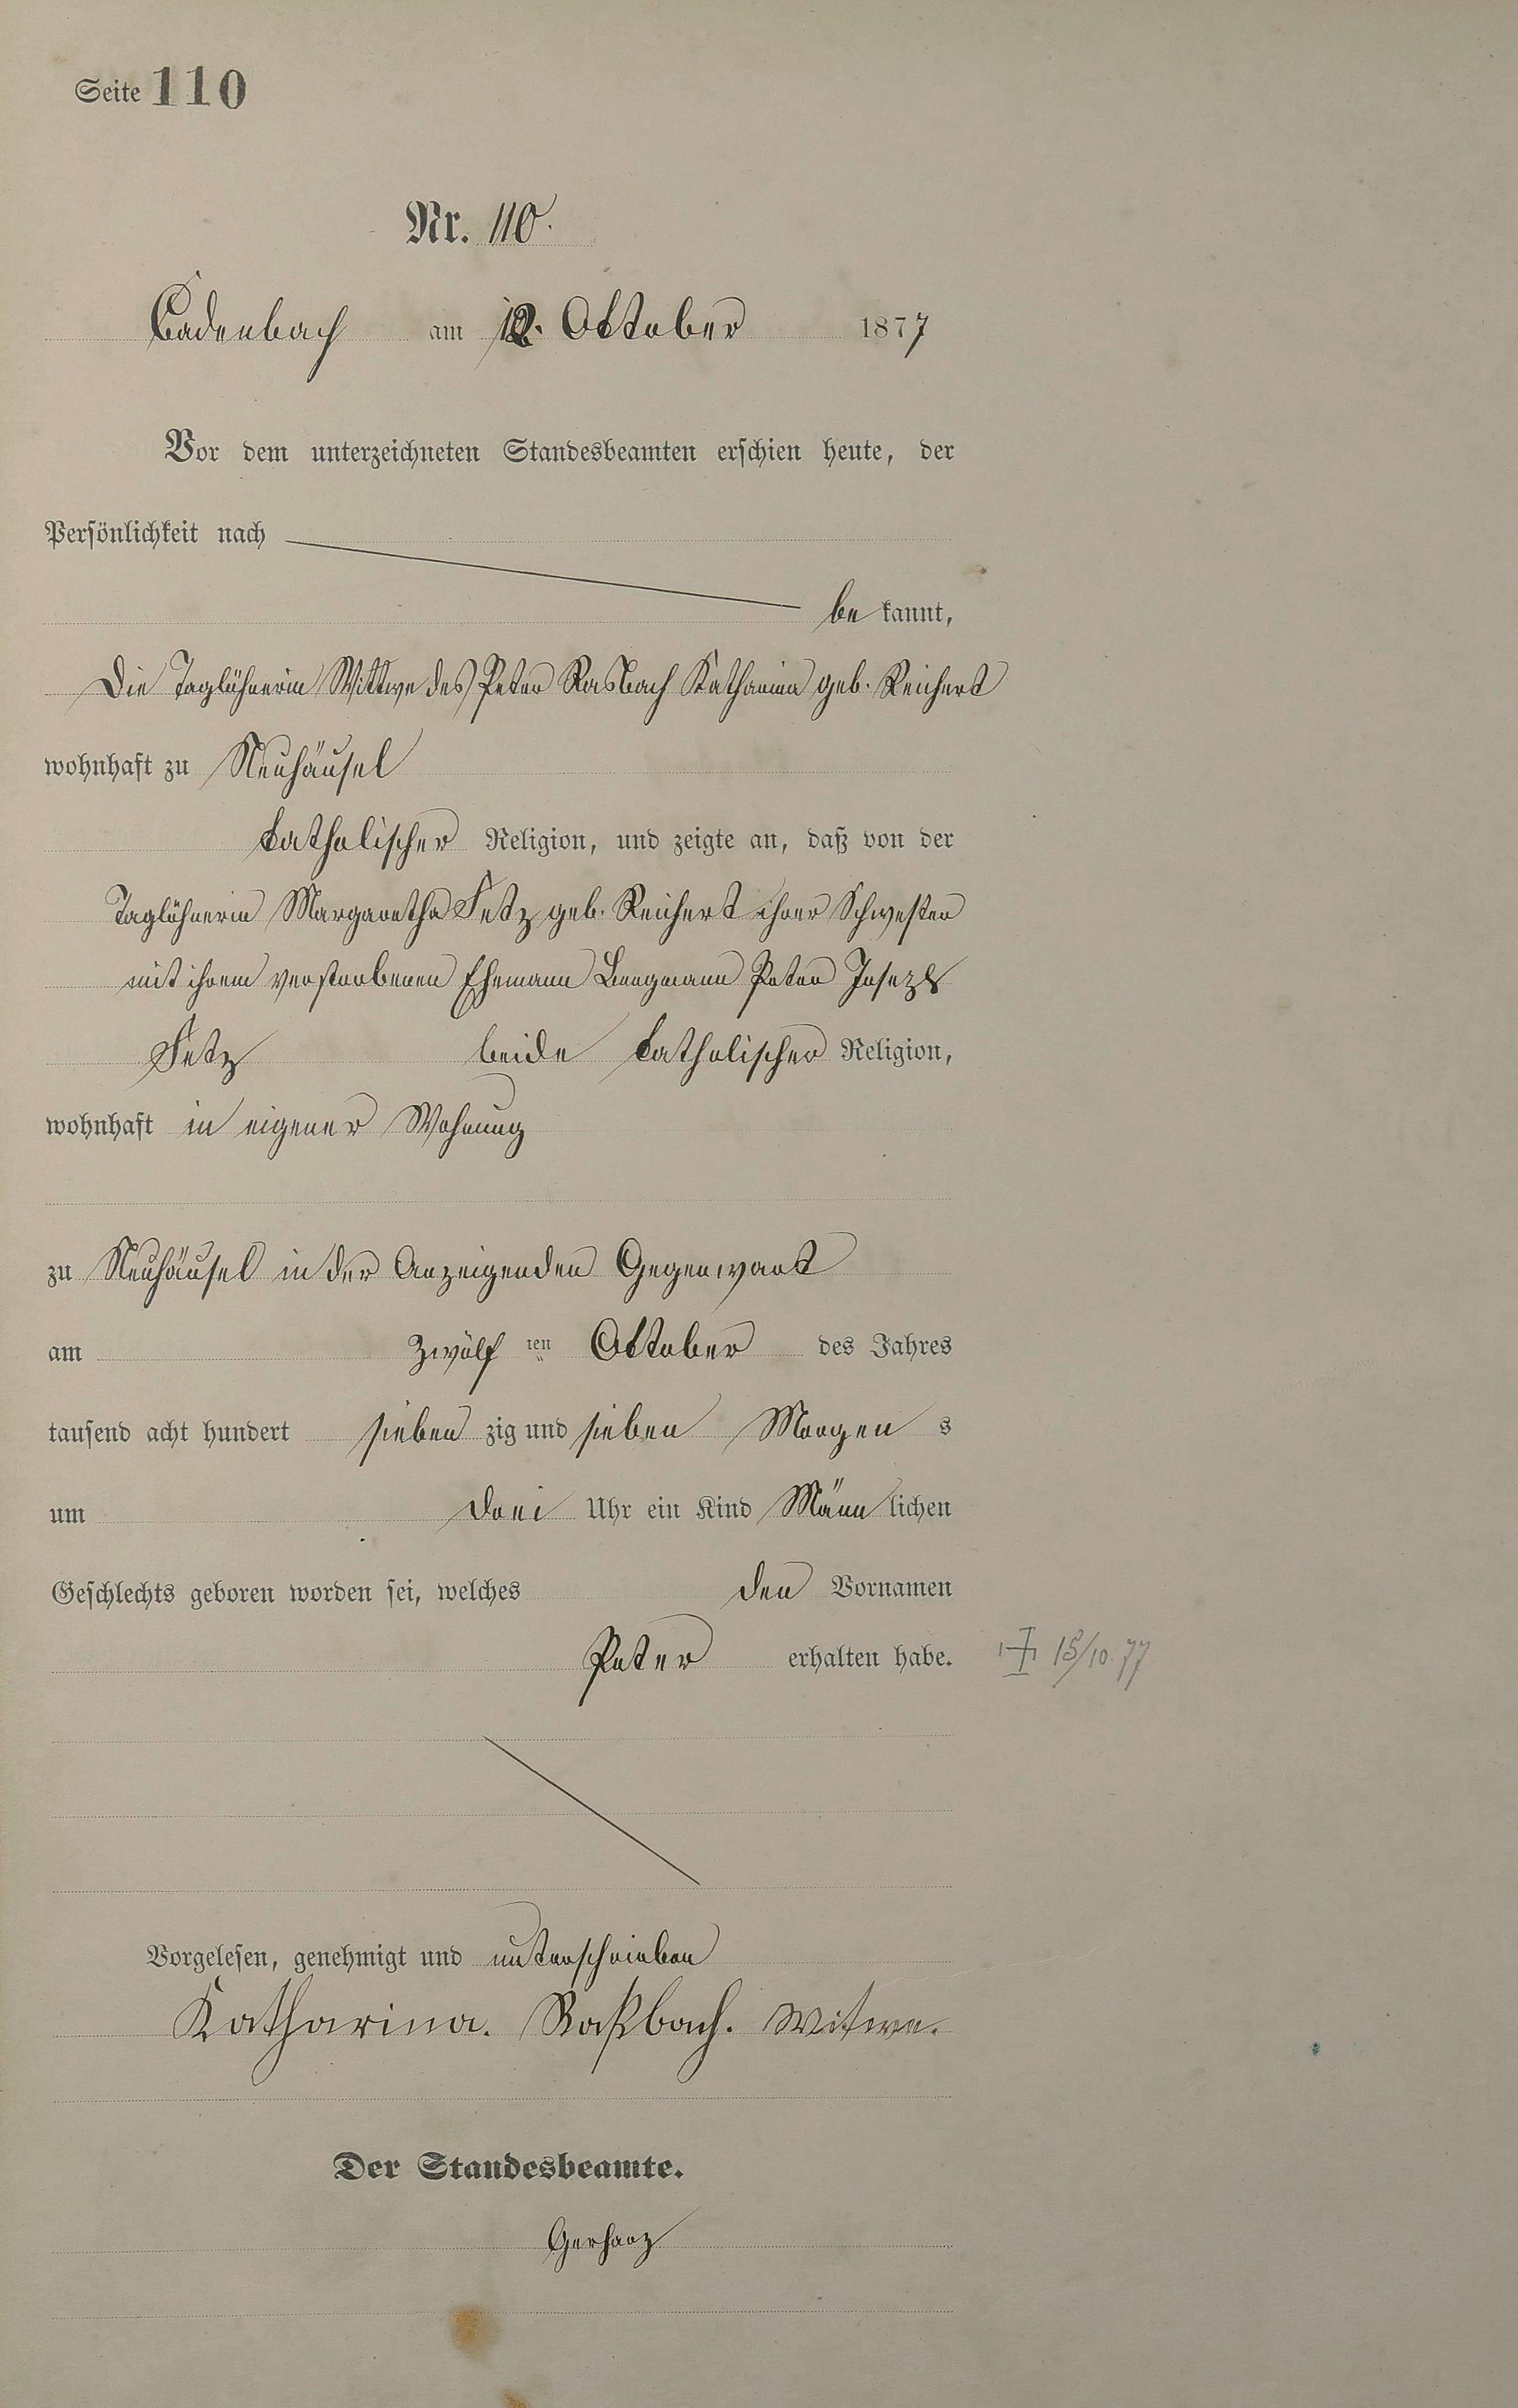 Seite 110
Nr. 110.
Cadenbach am 12. Oktober 1877
Vor dem unterzeichneten Standesbeamten erschien heute, der
Persönlichkeit nach
be kannt,
Die Taglöhnerin Wittwe des Peter Rasbach Katharina geb. Reichert
wohnhaft zu Neuhäusel
katholischer Religion, und zeigte an, daß von der
Taglöhnerin Margaretha Fetz geb. Reichert ihrer Schwester
mit ihrem verstorbenen Ehemann Bergmann Peter Joseph
Fetz beide katholischer Religion,
wohnhaft in eigener Wohnung
zu Neuhäusel in der Anzeigenden Gegenwart
am zwölf ten Oktober des Jahres
tausend acht hundert sieben zig und sieben Morgen s
um drei Uhr ein Kind Männ lichen
Geschlechts geboren worden sei, welches den Vornamen
Peter erhalten habe. 15/10.77
Vorgelesen, genehmigt und unterschrieben
Katharina. Raßbach. Witwe.
Der Standesbeamte.
Gerharz